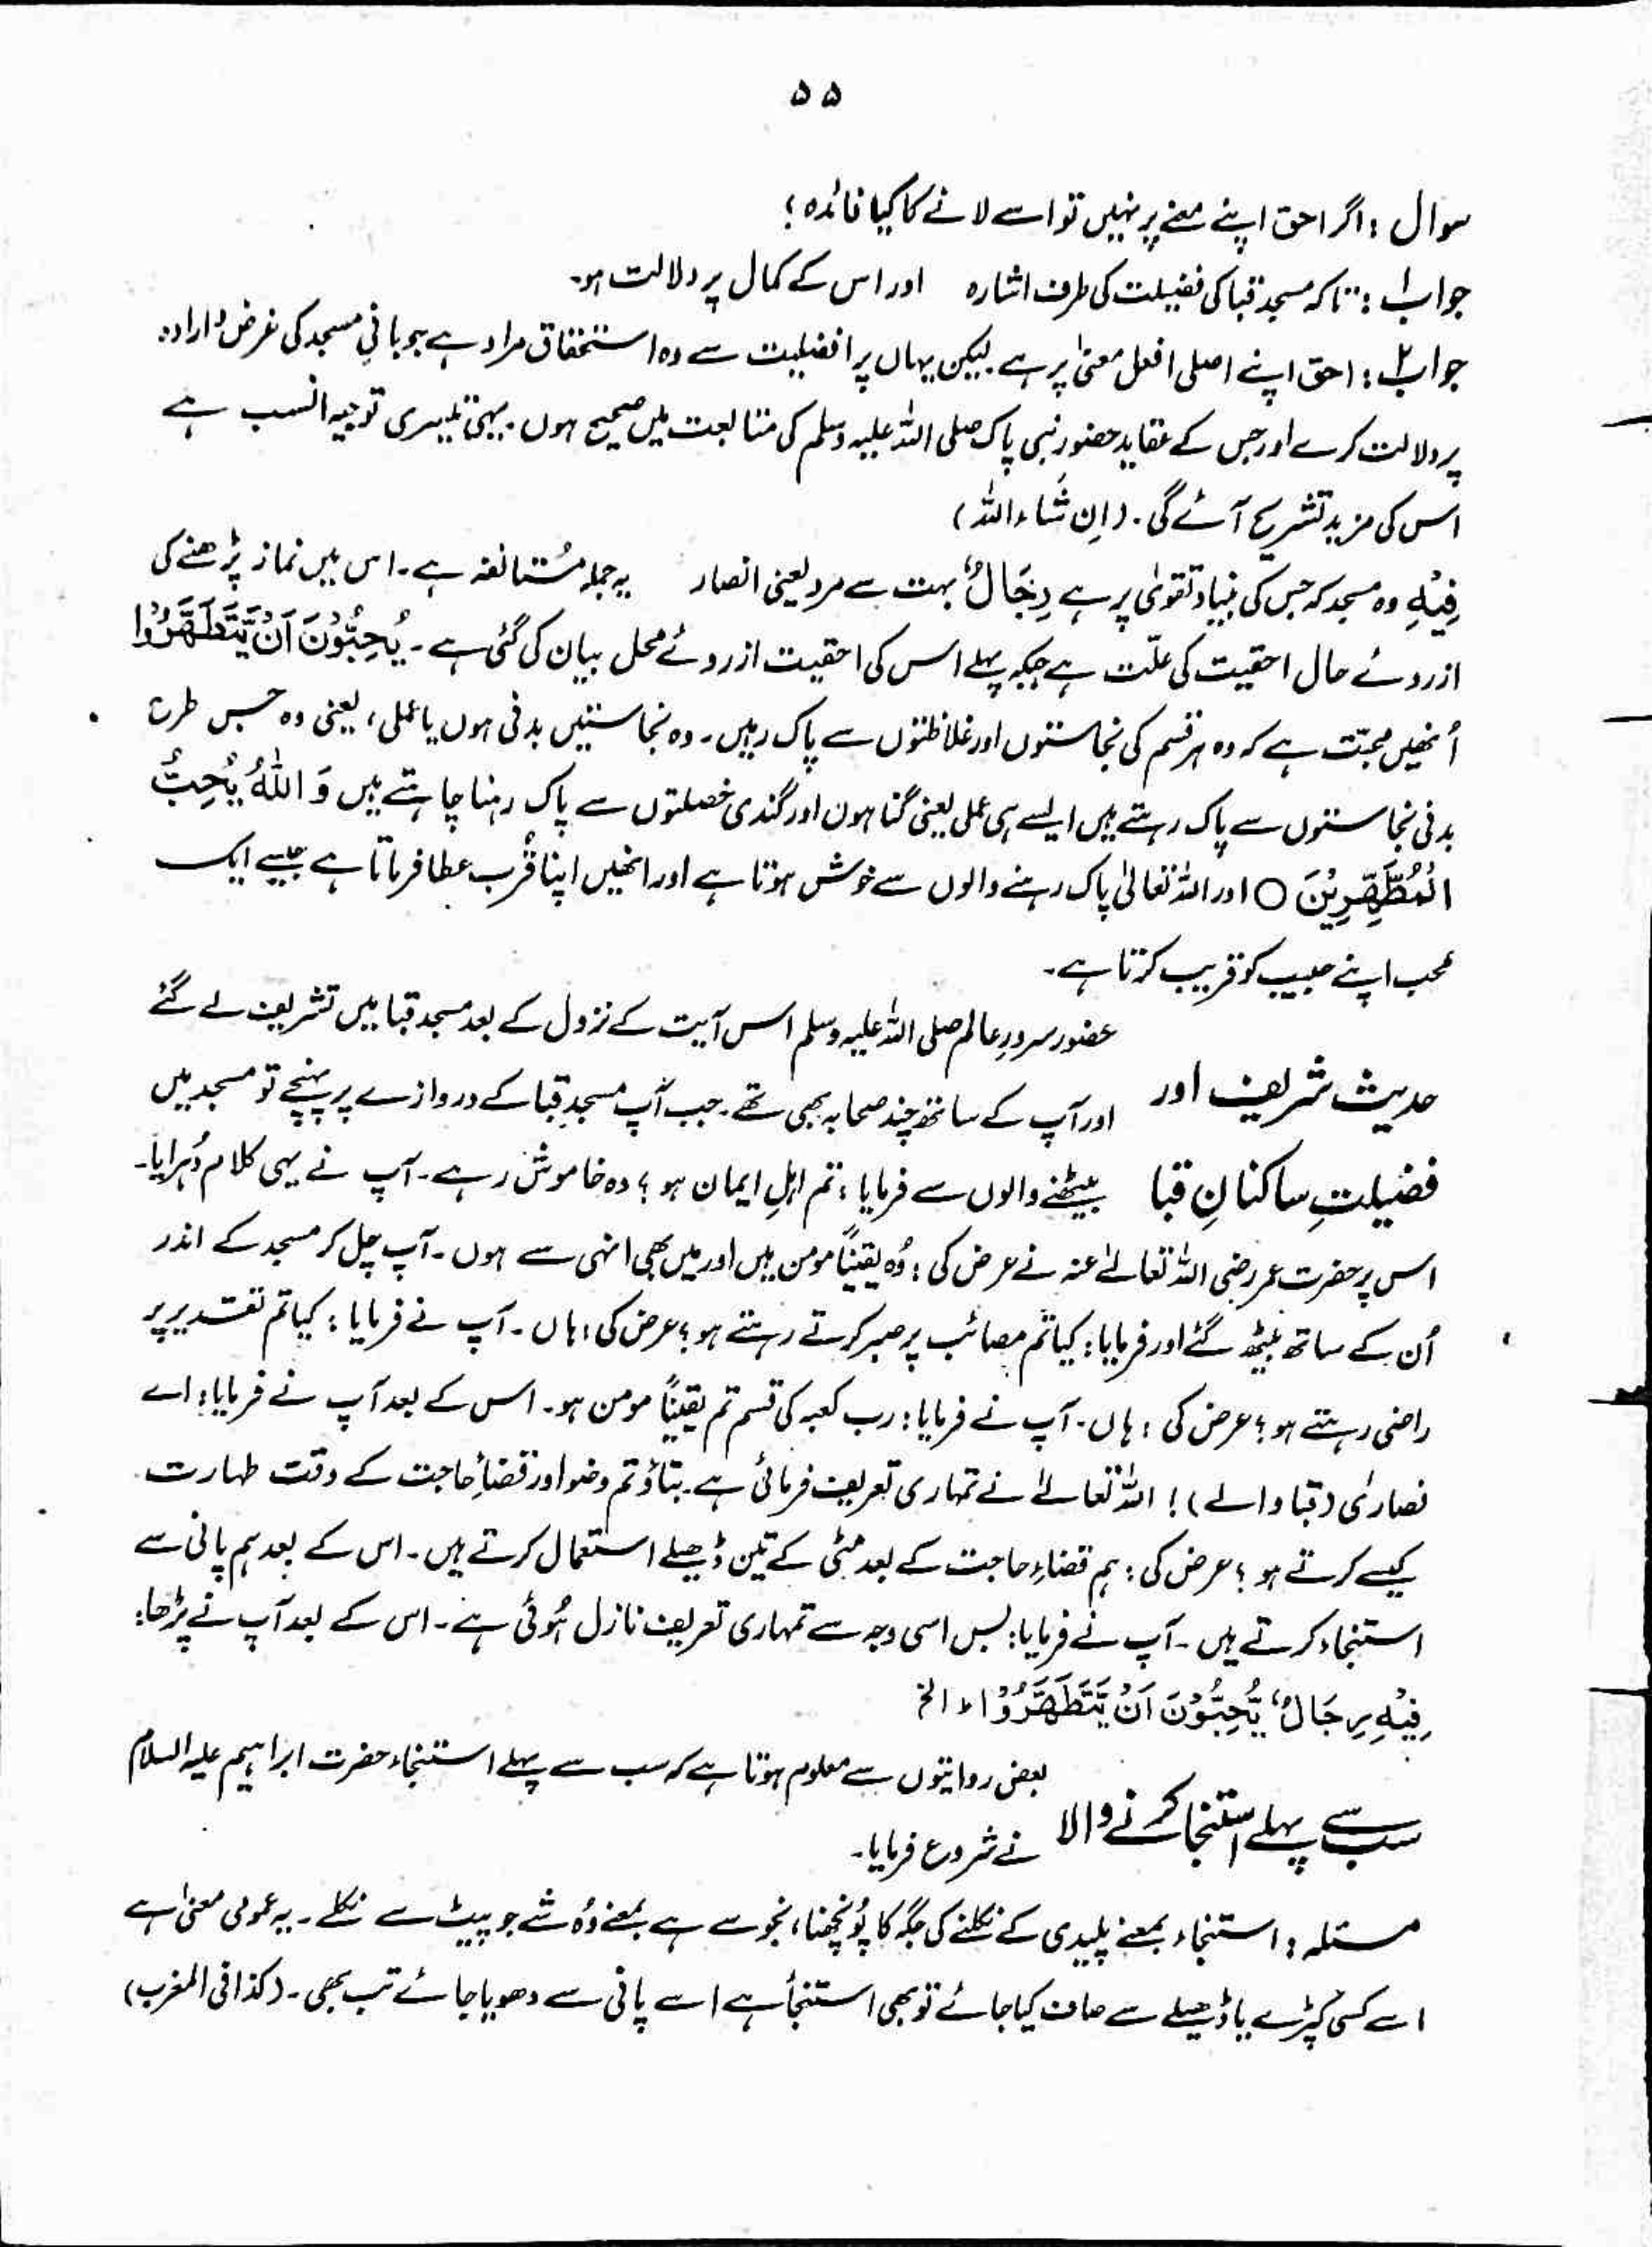 ۵۵
سوال : اگر احق اپنے معنے پر نہیں تو اسے لانے کا کیا فائدہ ؛
جواب ۱ : تاکہ مسجد قبا کی فضیلت کی طرف اشارہ اور اس کے کمال پر دلالت ہو۔
جواب ۲ : احق اپنے اصلی افعل معنیٰ پر ہے لیکن یہاں پر افضلیت سے وہ استحقاق مراد ہے جو بانیِ مسجد کی غرض و ارادہ
پر دلالت کرے اور جس کے عقاید حضور نبی پاک صلی اللہ علیہ وسلم کی متابعت میں صحیح ہوں۔ یہی تیسری توجیہ انسب ہے
اس کی مزید تشریح آئے گی۔ (اِن شَاء اللہ)
فِیْہِ وہ مسجد کہ جس کی بنیاد تقویٰ پر ہے رِجَالٌ بہت سے مرد یعنی انصار یہ جملہ مُستانفہ ہے۔ اس میں نماز پڑھنے کی
ازروئے حال احقیت کی علّت ہے جبکہ پہلے اس کی احقیت ازروئے محل بیان کی گئی ہے۔ یُحِبُّوْنَ اَنْ یَّتَطَهَّرُوْا
اُنھیں محبّت ہے کہ وہ ہر قسم کی نجاستوں اور غلاظتوں سے پاک رہیں۔ وہ نجاستیں بدنی ہوں یا عملی، یعنی وہ جس طرح
بدنی نجاستوں سے پاک رہتے ہیں ایسے ہی عملی یعنی گناہوں اور گندی خصلتوں سے پاک رہنا چاہتے ہیں وَ اللّٰہُ یُحِبُّ
الْمُطَّهِّرِیْنَ ○ اور اللہ تعالیٰ پاک رہنے والوں سے خوش ہوتا ہے اور انھیں اپنا قُرب عطا فرماتا ہے جیسے ایک
محب اپنے حبیب کو قریب کرتا ہے۔
حضور سرورِ عالم صلی اللہ علیہ وسلم اس آیت کے نزول کے بعد مسجد قبا میں تشریف لے گئے
حدیث شریف اور اور آپ کے ساتھ چند صحابہ بھی تھے۔ جب آپ مسجدِ قبا کے دروازے پر پہنچے تو مسجد میں
فضیلتِ ساکنانِ قبا بیٹھنے والوں سے فرمایا : تم اہلِ ایمان ہو ؟ وہ خاموش رہے۔ آپ نے یہی کلام دُہرایا۔
اس پر حضرت عمر رضی اللہ تعالےٰ عنہ نے عرض کی : وُہ یقیناً مومن ہیں اور میں بھی انہی سے ہوں۔ آپ چل کر مسجد کے اندر
اُن کے ساتھ بیٹھ گئے اور فرمایا : کیا تم مصائب پر صبر کرتے رہتے ہو ؟ عرض کی : ہاں۔ آپ نے فرمایا : کیا تم تقدیر پر
راضی رہتے ہو ؟ عرض کی : ہاں۔ آپ نے فرمایا : رب کعبہ کی قسم تم یقیناً مومن ہو۔ اس کے بعد آپ نے فرمایا : اے
نصارٰی (قبا والے) ! اللہ تعالےٰ نے تمہاری تعریف فرمائی ہے۔ بتاؤ تم وضو اور قضأِ حاجت کے وقت طہارت
کیسے کرتے ہو ؟ عرض کی : ہم قضاءِ حاجت کے بعد مٹی کے تین ڈھیلے استعمال کرتے ہیں۔ اس کے بعد ہم پانی سے
استنجاء کرتے ہیں۔ آپ نے فرمایا : بس اسی وجہ سے تمہاری تعریف نازل ہُوئی ہے۔ اس کے بعد آپ نے پڑھا :
فِیْہِ رِجَالٌ یُّحِبُّوْنَ اَنْ یَّتَطَهَّرُوْا ط الخ
بعض روایتوں سے معلوم ہوتا ہے کہ سب سے پہلے استنجاء حضرت ابراہیم علیہ السلام
سب سے پہلے استنجا کرنے والا نے شروع فرمایا۔
مسئلہ : استنجاء بمعنے پلیدی کے نکلنے کی جگہ کا پُونچھنا، نجو سے ہے بمعنے وُہ شے جو پیٹ سے نکلے۔ یہ عمومی معنیٰ ہے
اسے کسی کپڑے یا ڈھیلے سے صاف کیا جائے تو بھی استنجأ ہے اسے پانی سے دھویا جائے تب بھی۔ (کذا فی المغرب)